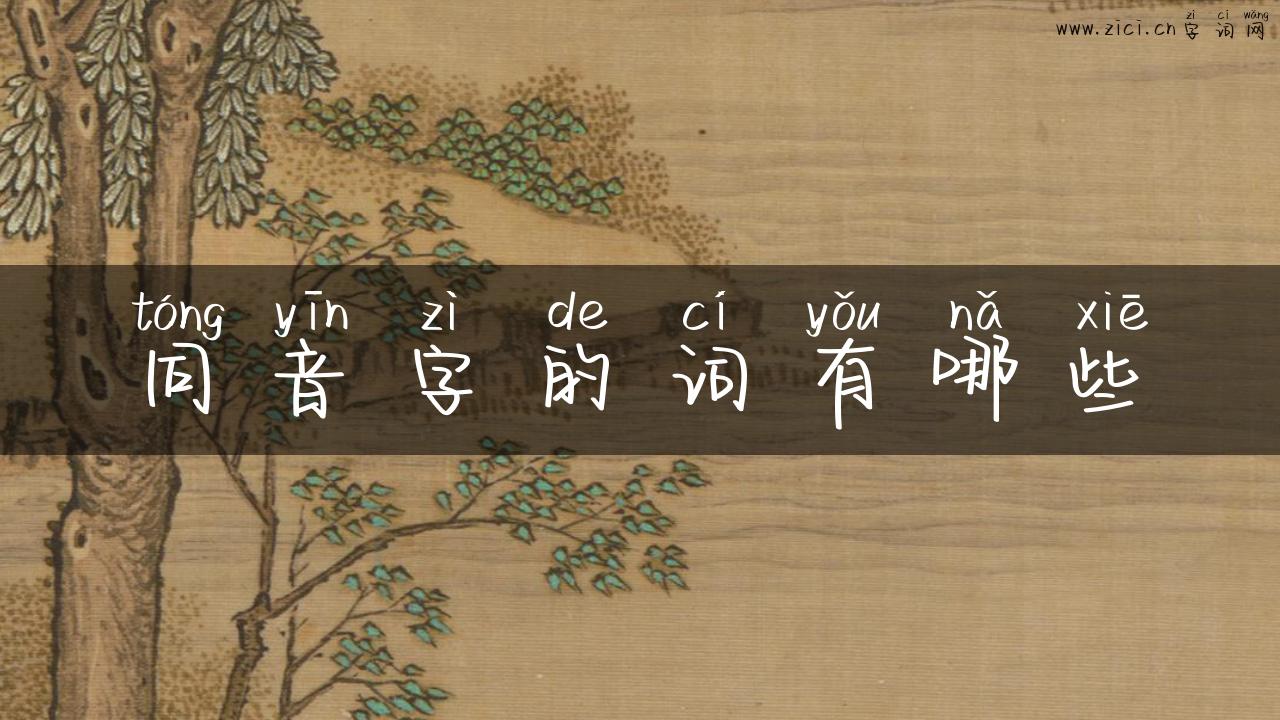 zì cí wǎng
www.zici.cn字词网
tóng yīn zì de cí yǒu nǎ xiē
同音字的词有哪些